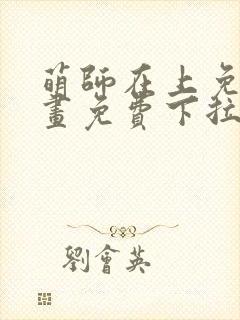 萌師在上免
畫免費下拉
劉會英